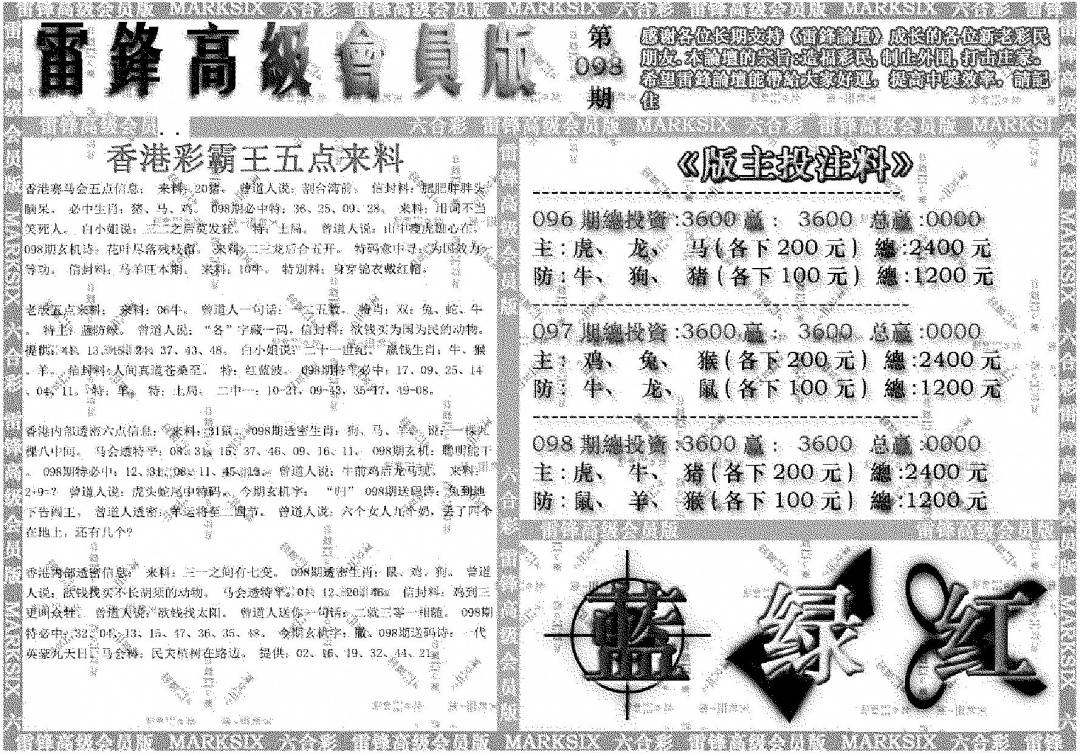 雷鋒高級會員版
第
098
期
感谢各位长期支持《雷鋒論壇》成长的各位新老彩民
朋友.本論壇的宗旨:造福彩民,制止外围,打击庄家.
希望雷鋒論壇能帶給大家好運，提高中獎效率，請記
住
雷锋高级会员版
六合彩 雷锋高级会员版 MARKSIX 六合彩 雷锋高级会员版 MARKSIX
香港彩霸王五点来料
香港赛马会五点信息： 来料：20猪。 曾道人说：割台湾前。 信封料：肥肥胖胖头
脑呆。 必中生肖：猪、马、鸡。 098期必中特：36、25、09、28。 来料：用词不当
笑死人。 白小姐说：三二之后莫发狂。 特：土局。 曾道人说：山中瘦虎
098期玄机诗：花叶尽落残枝留。 来料：二三龙后合五开。 特码意中寻：为国效力
等功。 信封料：马羊旺本期。 来料：10牛。 特别料：身穿锦衣戴红帽。
老版五点来料： 来料：06牛。 曾道人一句话：一二五数。 特肖：双：兔、蛇、牛
。 特土：蓝防绿。 曾道人说：“各”字藏一码。信封料：欲钱买为国为民的动物。
37、43、48。 白小姐说：二十一世纪。 赢钱生肖：牛、猴
、羊。 信封料：人间真道苍桑至。 特：红蓝波。 098期特平必中：17、09、25、14
、04、11。 特：羊。 特：土局。 二中一：10-21、09-43、35-17、49-08。
香港内部透密六点信息： 来料：31鼠。 098期透密生肖：狗、马、 说：一棵九
棵八中间。 马会透特平：08、31、15、37、46、09、16、11。 098期玄机：聪明能干
。 098期特必中：12、31、06、11、45、19。 曾道人说：牛前鸡后龙马现。 来料：
2+9=? 曾道人说：虎头蛇尾中特码。 今期玄机字： “归” 098期送码诗：兔到地
下告阎王。 曾道人透密：幸运将至二圆节。 曾道人说：六个女人九个奶，丢了四个
在地上，还有几个?
香港内部透密信息： 来料：三一之间有七变。 098期透密生肖：鼠、鸡、狗。 曾道
人说：欲钱找买不长胡须的动物。 马会透特平：01、12、20、46。 信封料：鸡到三
更叫众牲。 曾道人说：欲钱找太阳。 曾道人送你一句话：二就三零一相随。 098期
特必中：32、04、13、15、47、36、35、48。 今期玄机字：撇、098期送码诗：一代
英豪九天日。马会神：民夫植树在路边。 提供：02、16、19、32、44、21。
《版主投注料》
096 期總投资:3600 赢: 3600 总赢:0000
主:虎、 龙、 马(各下200元) 總:2400元
防:牛、 狗、 猪(各下100元) 總:1200元
097 期總投资:3600 赢: 3600 总赢:0000
主: 鸡、 兔、 猴(各下200元) 總:2400元
防: 牛、 龙、 鼠(各下100元) 總:1200元
098 期總投资:3600 赢: 3600 总赢:0000
主:虎、 牛、 猪(各下200元) 總:2400元
防:鼠、 羊、 猴(各下100元) 總:1200元
雷锋高级会员版 雷锋高级会员版
蓝 绿 红
雷锋高级会员版 MARKSIX 六合彩 雷锋高级会员版 MARKSIX 六合彩 雷锋高级会员版 MARKSIX 六合彩 雷锋高级会员版